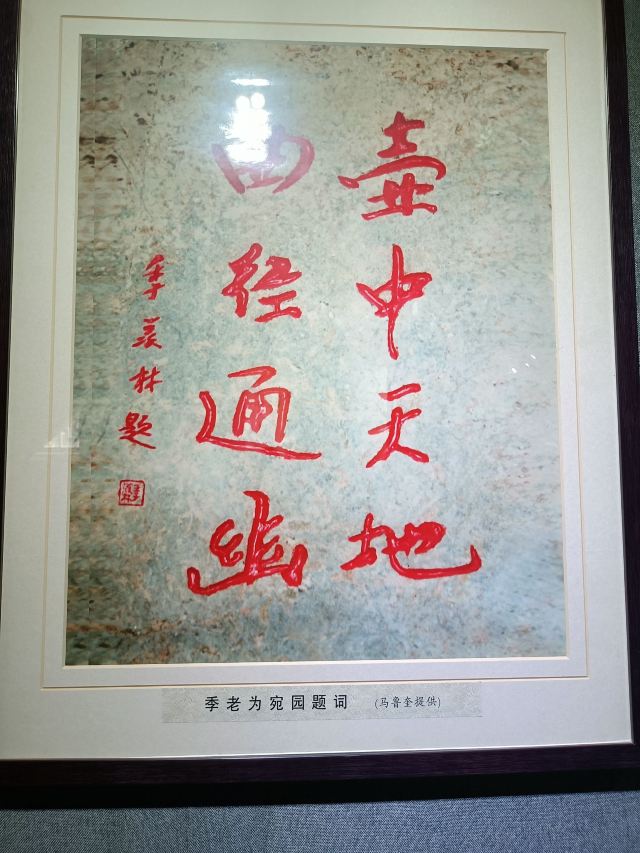 壶中天地
曲径通幽
季羡林题
季老为宛园题词 (马鲁奎提供)